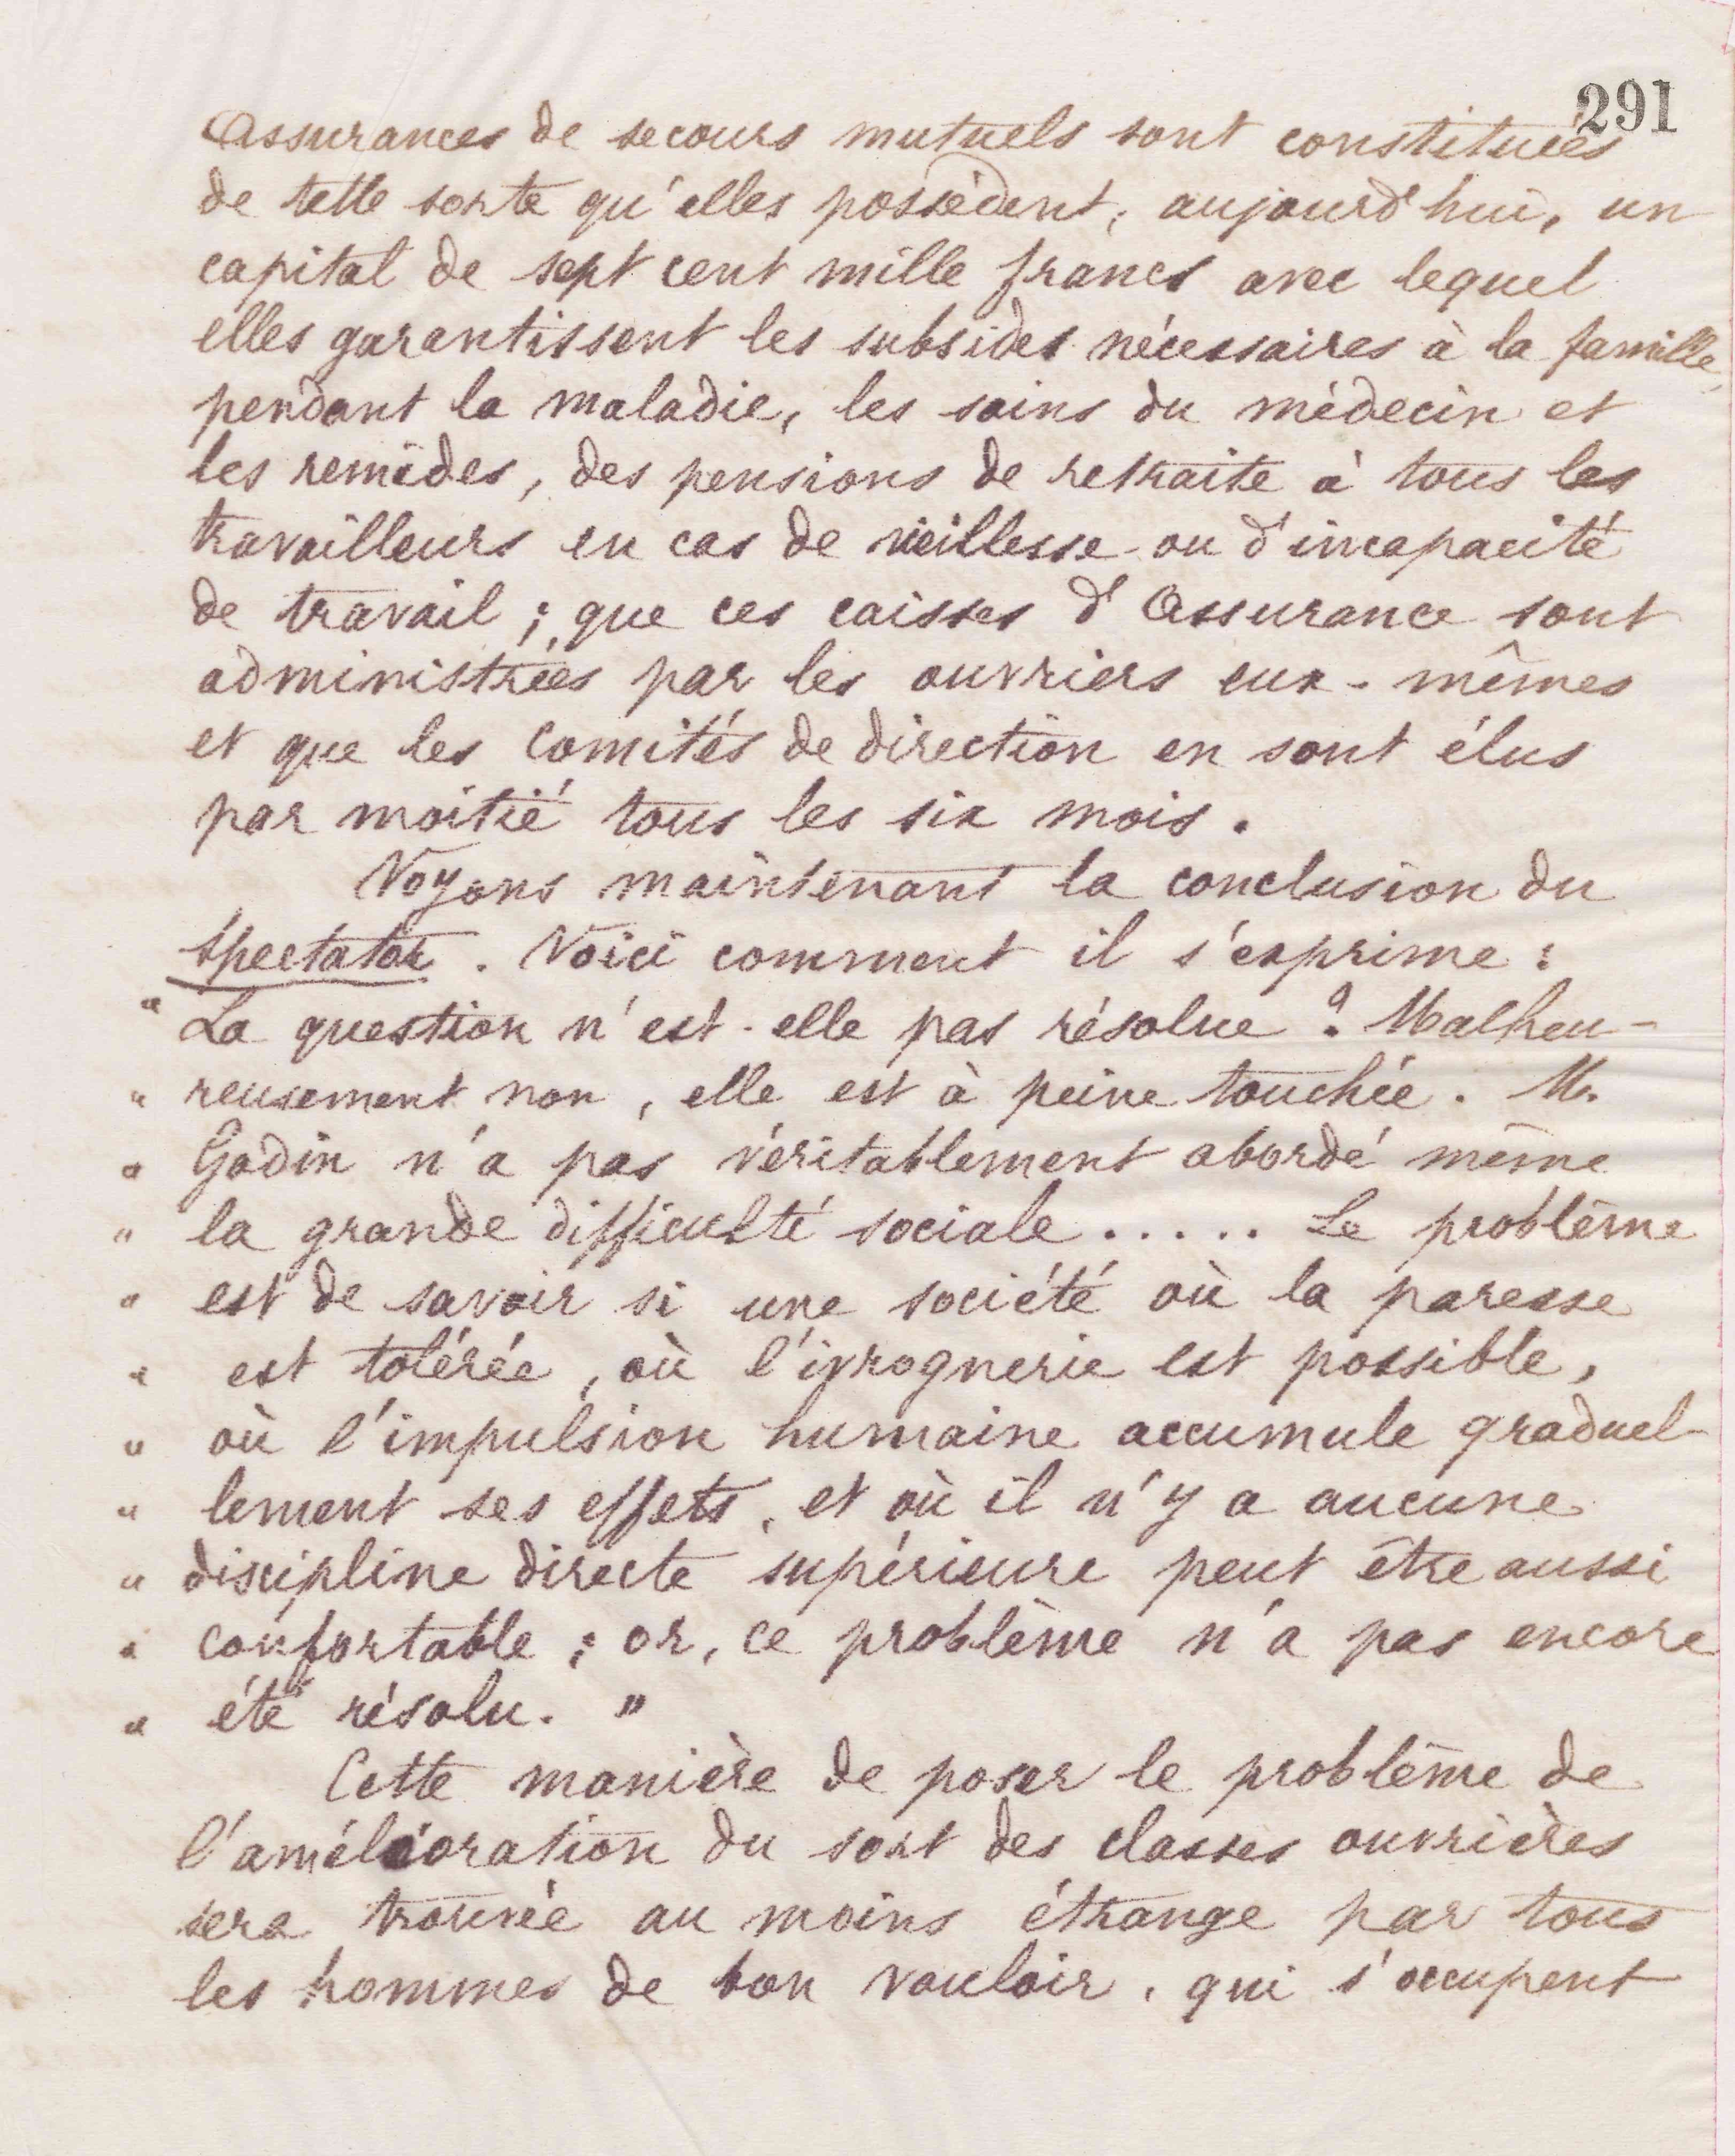 291
Assurances de secours mutuels sont constituées
de telle sorte qu'elles possèdent, aujourd'hui, un
capital de sept cent mille francs avec lequel
elles garantissent les subsides nécessaires à la famille,
pendant la maladie, les soins du médecin et
les remèdes, des pensions de retraite à tous les
travailleurs en cas de vieillesse ou d'incapacité
de travail ; que ces caisses d'Assurance sont
administrées par les ouvriers eux-mêmes
et que les Comités de direction en sont élus
par moitié tous les six mois.
Voyons maintenant la conclusion du
Spectator. Voici comment il s'exprime :
" La question n'est-elle pas résolue ? Malheu-
" reusement non, elle est à peine touchée. M.
" Godin n'a pas véritablement abordé même
" la grande difficulté sociale ..... Le problème
" est de savoir si une société où la paresse
" est tolérée, où l'ivrognerie est possible,
" où l'impulsion humaine accumule graduel-
" lement ses effets, et où il n'y a aucune
" discipline directe supérieure peut être aussi
" confortable ; or, ce problème n'a pas encore
" été résolu. "
Cette manière de poser le problème de
l'amélioration du sort des classes ouvrières
sera trouvée au moins étrange par tous
les hommes de bon vouloir, qui s'occupent